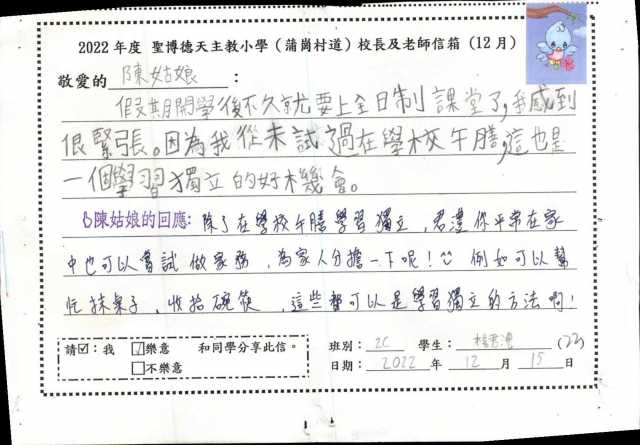 2022 年度 聖博德天主教小學（蒲崗村道）校長及老師信箱（12 月）
敬愛的 陳姑娘 ：
假期開學後不久就要上全日制課堂了,我感到
很緊張。因為我從未試過在學校午膳,這也是
一個學習獨立的好機會。
陳姑娘的回應: 除了在學校午膳學習獨立，君澤你平常在家
中也可以嘗試做家務，為家人分擔一下呢！例如可以幫
忙抹桌子，收拾碗筷，這些都可以是學習獨立的方法啊！
請☑：我 ☑樂意 和同學分享此信。 班別：2C 學生： (22)
□不樂意 日期：2022 年 12 月 15 日